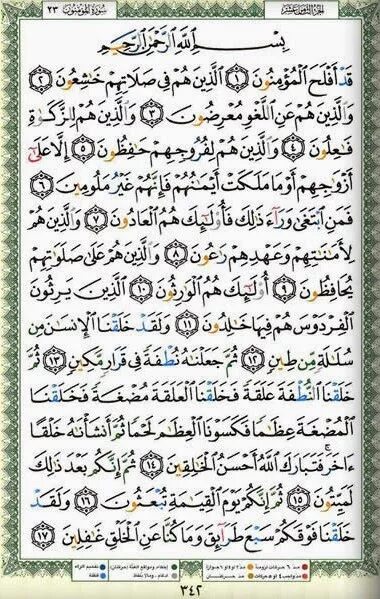 الجزء الثامن عشر
سورة المؤمنون ٢٣
بِسْمِ اللَّهِ الرَّحْمَٰنِ الرَّحِيمِ
قَدْ أَفْلَحَ الْمُؤْمِنُونَ ١ الَّذِينَ هُمْ فِي صَلَاتِهِمْ خَاشِعُونَ ٢
وَالَّذِينَ هُمْ عَنِ اللَّغْوِ مُعْرِضُونَ ٣ وَالَّذِينَ هُمْ لِلزَّكَوٰةِ
فَاعِلُونَ ٤ وَالَّذِينَ هُمْ لِفُرُوجِهِمْ حَافِظُونَ ٥ إِلَّا عَلَىٰ
أَزْوَاجِهِمْ أَوْ مَا مَلَكَتْ أَيْمَانُهُمْ فَإِنَّهُمْ غَيْرُ مَلُومِينَ ٦
فَمَنِ ابْتَغَىٰ وَرَاءَ ذَٰلِكَ فَأُولَٰئِكَ هُمُ الْعَادُونَ ٧ وَالَّذِينَ هُمْ
لِأَمَانَاتِهِمْ وَعَهْدِهِمْ رَاعُونَ ٨ وَالَّذِينَ هُمْ عَلَىٰ صَلَوَاتِهِمْ
يُحَافِظُونَ ٩ أُولَٰئِكَ هُمُ الْوَارِثُونَ ١٠ الَّذِينَ يَرِثُونَ
الْفِرْدَوْسَ هُمْ فِيهَا خَالِدُونَ ١١ وَلَقَدْ خَلَقْنَا الْإِنسَانَ مِن
سُلَالَةٍ مِّن طِينٍ ١٢ ثُمَّ جَعَلْنَاهُ نُطْفَةً فِي قَرَارٍ مَّكِينٍ ١٣ ثُمَّ
خَلَقْنَا النُّطْفَةَ عَلَقَةً فَخَلَقْنَا الْعَلَقَةَ مُضْغَةً فَخَلَقْنَا
الْمُضْغَةَ عِظَامًا فَكَسَوْنَا الْعِظَامَ لَحْمًا ثُمَّ أَنشَأْنَاهُ خَلْقًا
ءَاخَرَ فَتَبَارَكَ اللَّهُ أَحْسَنُ الْخَالِقِينَ ١٤ ثُمَّ إِنَّكُم بَعْدَ ذَٰلِكَ
لَمَيِّتُونَ ١٥ ثُمَّ إِنَّكُمْ يَوْمَ الْقِيَامَةِ تُبْعَثُونَ ١٦ وَلَقَدْ
خَلَقْنَا فَوْقَكُمْ سَبْعَ طَرَائِقَ وَمَا كُنَّا عَنِ الْخَلْقِ غَافِلِينَ ١٧
٣٤٢